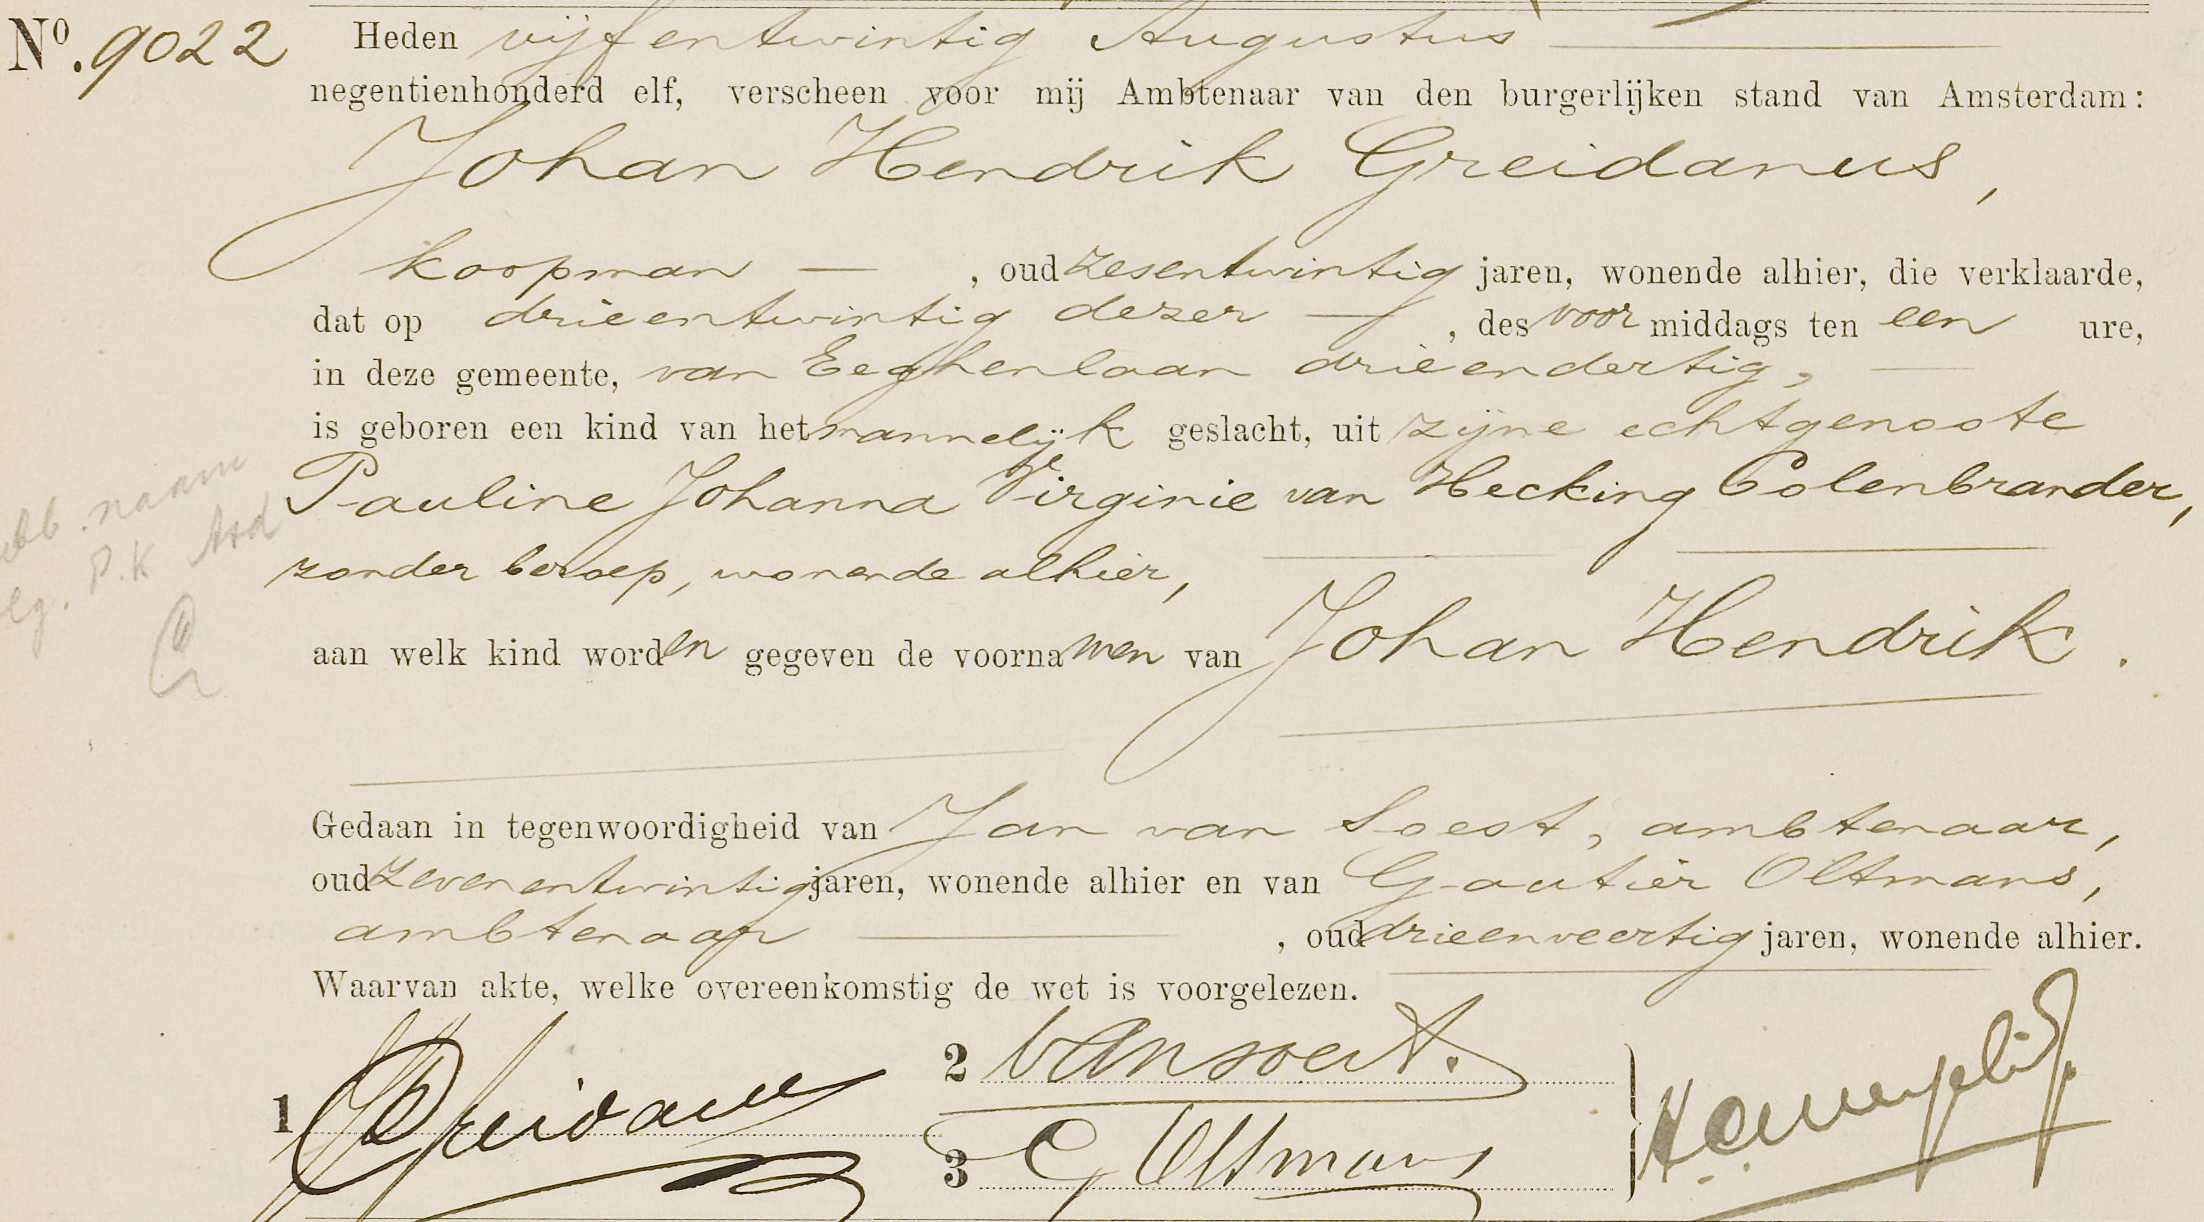 Nº. 9022 Heden vijfentwintig Augustus
negentienhonderd elf, verscheen voor mij Ambtenaar van den burgerlijken stand van Amsterdam:
Johan Hendrik Greidanus,
koopman —, oud zesentwintig jaren, wonende alhier, die verklaarde,
dat op drieentwintig dezer —, des voor middags ten een ure,
in deze gemeente, van Eeghenlaan drieendertig, —
is geboren een kind van het mannelijk geslacht, uit zijne echtgenoote
Pauline Johanna Virginie van Hecking Colenbrander,
zonder beroep, wonende alhier,
aan welk kind worden gegeven de voornamen van Johan Hendrik.
naam
P.K Asd
Gedaan in tegenwoordigheid van Jan van Soest, ambtenaar,
oud zevenentwintig jaren, wonende alhier en van Gautier Oltmans,
ambtenaar —, oud drieenveertig jaren, wonende alhier.
Waarvan akte, welke overeenkomstig de wet is voorgelezen.
1 JHGreidanus
2 van Soest.
3 G Oltmans